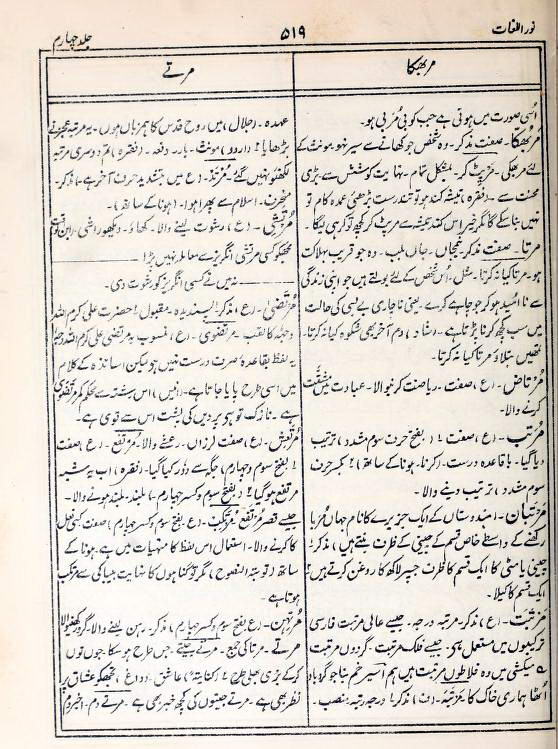 نور اللغات
۵۱۹
جلد چہارم
مر بھکا
مرتے
اُسی صورت میں ہوتی ہے جب کوئی مُربّی ہو۔
مَر بُھکّا۔ صفت مذکر۔ وہ شخص جو کھانے سے سیر نہو۔ مونث کے
لئے مربھکی۔ مَر پِٹ کر۔ بمشکل تمام۔ نہایت کوشش سے بڑی
محنت سے۔ (فقرہ) تیشہ کند ہو تو تندرست بڑھئی عمدہ کام تو
نہیں بنا سکے گا مگر خیر اس کند تیشہ سے مر پٹ کر کچھ تو کر ہی لیگا۔
مرتا۔ صفت مذکر۔ نیمجاں۔ جاں بلب۔ وہ جو قریب ہلاکت
ہو۔ مرتا کیا نہ کرتا۔ مثل۔ اُس شخص کے لئے بولتے ہیں جو اپنی زندگی
سے نا اُمید ہو کر جو چاہے کرے۔ یعنی ناچاری بے بسی کی حالت
میں سب کچھ کرنا پڑتا ہے۔ (شاد) دم آخر بھی شکوہ کیا نہ کرتا۔
تمھیں بتلاؤ مرتا کیا نہ کرتا۔
مُرتاض۔ (ع) صفت۔ ریاضت کرنیوالا۔ عبادت میں مشقّت
کرنے والا۔
مُرتّب۔ (ع) صفت۔ (بفتح حرف سوم مشدد) ترتیب
دیا گیا۔ با قاعدہ درست۔ (کرنا۔ ہونا کے ساتھ) بکسر حرف
سوم مشدد) ترتیب دینے والا۔
مرتبان۔ ہندوستان کے ایک جزیرے کا نام جہاں مُربّا
رکھنے کے واسطے خاص قسم کے چینی کے ظرف بنتے ہیں) مذکر۔
چینی یا مٹی کا ایک قسم کا ظرف جسپر لاکھ کا روغن کرتے ہیں۔
ایک قسم کا کیلا۔
مرتبت۔ (ع) مذکر۔ مرتبہ درجہ۔ جیسے عالی مرتبت فارسی
ترکیبوں میں مستعمل ہے۔ جیسے فلک مرتبت۔ گردوں مرتبت
میکشی میں وہ فلاطوں مرتبت ہیں ہم اسیر خم بنا جو گرد باد
اُٹھا ہماری خاک کا۔ مرتبہ۔ (ف) مذکر۔ درجہ رتبہ۔ منصب۔
عہدہ۔ (جلال) میں روح قدس کا ہمزباں ہوں۔ یہ مرتبہ عجز نے
بڑھایا۔ (اردو) مونث۔ بار۔ دفعہ۔ (فقرہ) تم دوسری مرتبہ
لکھنؤ نہیں گئے۔ مُرتد۔ (ع میں بتشدید حرف آخر ہے) مذکر۔
منحرف۔ اسلام سے پھرا ہوا۔ (ہونا کے ساتھ)
مُرتشی۔ (ع) رشوت لینے والا۔ کھاؤ۔ دیکھو راشی۔ (ابن الوقت)
مجھکو کسی مرتشی انگریز سے معاملہ نہیں پڑا
نہ میں نے کسی انگریز کو رشوت دی۔
مرتضیٰ۔ (ع) مذکر۔ پسندیدہ۔ مقبول۔ حضرت علی کرم اللہ
وجہہ کا لقب۔ مرتضوی۔ (ع) منسوب بہ مرتضیٰ علی کرم اللہ وجہہ
یہ لفظ بقاعدۂ صرف درست نہیں ہو لیکن اساتذہ کے کلام
میں اسی طرح پایا جاتا ہے۔ (انیس) اس رشتہ سے محکم کمر مرتضوی
ہے۔ نازک تو ہو پر دین کی پشت اس سے قوی ہے۔
مرتعش۔ (ع) صفت لرزاں۔ رعشے والا۔ مرتفع۔ (ع) صفت
(بفتح سوم وچہارم) جگہ سے دُور کیا گیا۔ (فقرہ) اب یہ شبہ
مرتفع ہو گیا۔ (بفتح سوم وکسر چہارم) بلند۔ بلند ہونے والا۔
جیسے قصر مرتفع۔ مرتکب۔ (ع بفتح سوم وکسر چہارم) صفت کسی فعل
کا کرنے والا۔ استعمال اس لفظ کا منہیات میں ہے۔ ہونا کے
ساتھ (توبۃ النصوح) مگر تو گناہوں کا نہایت بیباکی سے مرتکب
ہوتا ہے۔
مرتہن۔ (ع) بفتح سوم وکسر چہارم) مذکر۔ رہن لینے والا۔ گرو رکھنیوالا
مرتے۔ مرتا کی جمع۔ مرتے جیتے۔ جس طرح ہو سکا جوں توں
کرکے بڑی بھلی طرح۔ (کنایۃً) عاشق۔ (داغ) تجھکو عشاق پر
نظر بھی ہے۔ مرتے جیتوں کی کچھ خبر بھی ہے۔ مرتے دم۔ اخیر دم